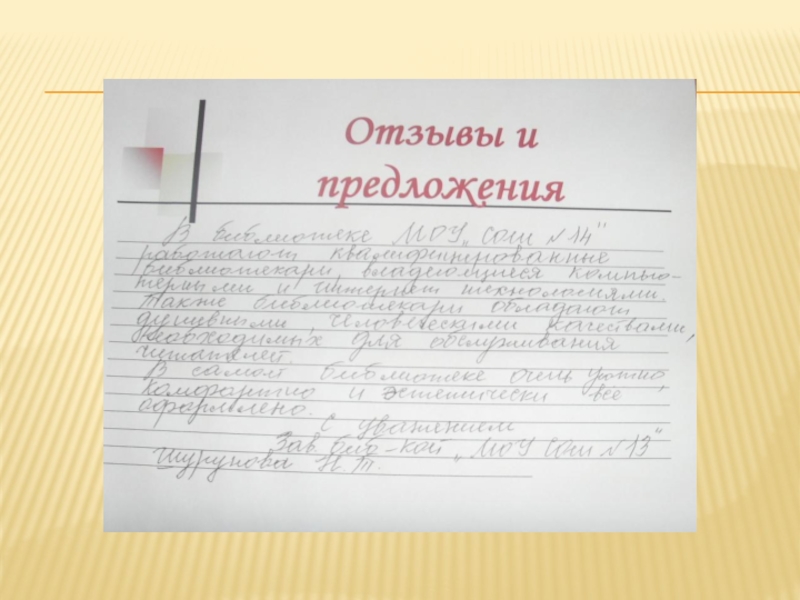 Отзывы и
предложения
В библиотеке МОУ „Сош №14"
работают квалифицированные
библиотекари владеющиеся компью-
терными и интернет технологиями.
Также библиотекари обладают
душевными, человескими качествами,
необходимых для обслуживания
читателей.
В самой библиотеке очень уютно,
комфортно и эстетически все
оформлено.
С уважением
Зав. биб-кой „МОУ Сош №13"
Шурупова Н.Т.